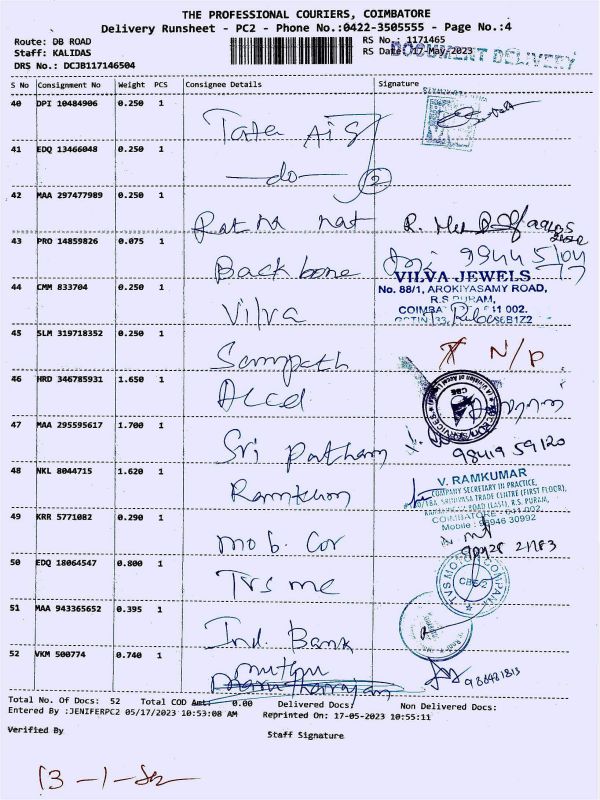 THE PROFESSIONAL COURIERS, COIMBATORE
Delivery Runsheet - PC2 - Phone No.:0422-3505555 - Page No.:4
Route: DB ROAD
RS No.: 1171465
Staff: KALIDAS
RS Date: 17-May-2023
DOCUMENT DELIVERY
DRS No.: DCJB117146504
S No Consignment No Weight PCS Consignee Details Signature
40 DPI 10484906 0.250 1 Tata AIG
41 EDQ 13466048 0.250 1 —do— 2
42 MAA 297477989 0.250 1 Ratna nat
43 PRO 14859826 0.075 1 Backbone
44 CMM 833704 0.250 1 Vilva
VILVA JEWELS
No. 88/1, AROKIYASAMY ROAD,
R.S PURAM,
45 SLM 319718352 0.250 1 Sampath N/P
46 HRD 346785931 1.650 1 Accel
47 MAA 295595617 1.700 1 Sri Patham 98419 59120
48 NKL 8044715 1.620 1
V. RAMKUMAR
COMPANY SECRETARY IN PRACTICE,
SRINIVASA TRADE CENTRE (FIRST FLOOR),
ROAD (EAST), R.S. PURAM,
COIMBATORE - 641 002.
Mobile : 98946 30992
49 KRR 5771082 0.290 1 mob. Cor
50 EDQ 18064547 0.800 1 TVS mc
TVS MOTOR COMPANY
51 MAA 943365652 0.395 1 Ind. Bank
52 VKM 500774 0.740 1 muthu
Total No. Of Docs: 52 Total COD Amt: 0.00 Delivered Docs: Non Delivered Docs:
Entered By :JENIFERPC2 05/17/2023 10:53:08 AM Reprinted On: 17-05-2023 10:55:11
Verified By
Staff Signature